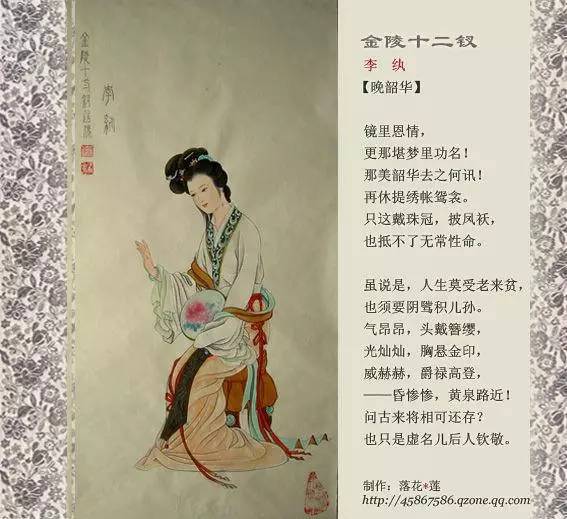 金陵十二钗
李 纨
【晚韶华】
镜里恩情，
更那堪梦里功名！
那美韶华去之何讯！
再休提绣帐鸳衾。
只这戴珠冠，披凤袄，
也抵不了无常性命。
虽说是，人生莫受老来贫，
也须要阴骘积儿孙。
气昂昂，头戴簪缨，
光灿灿，胸悬金印，
威赫赫，爵禄高登，
——昏惨惨，黄泉路近！
问古来将相可还存？
也只是虚名儿后人钦敬。
制作：落花*莲
http://45867586.qzone.qq.com
李纨